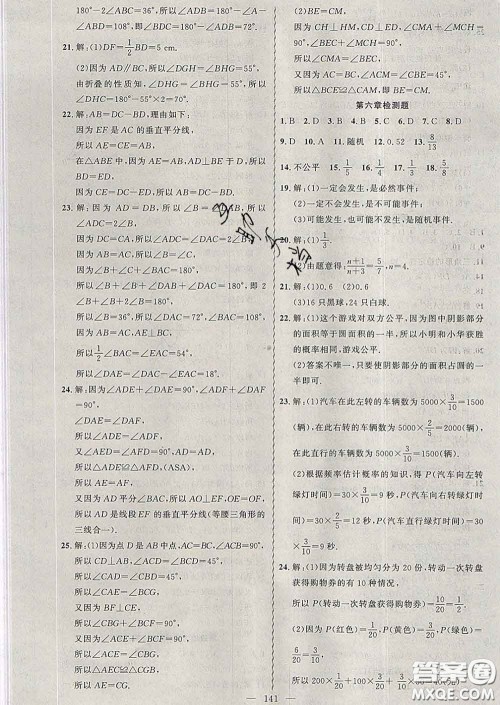 180°-2∠A=36°,
所以∠ADB=180°-∠A-
∠ABD=180°-72°-36°=72°.
21. 解:(1)DF=1/2BD=5 cm.
(2)因为AD∥BC,所以∠DGH=∠BHG=55°,
由折叠的性质可得∠DHG=∠BHG=55°,所以
∠DHC=180°-55°×2=70°.
22. 解:AB=DC-BD,理由如下:
因为EF是AC的垂直平分线,
所以AE=CE=AB,
在△ABE中,因为AE=AB,AD⊥BE于D,所以
BD=ED,
因为EC=DC-ED,所以AB=DC-BD.
23. 解:因为AD=DB,所以∠B=
所以∠ADC=2∠B,
因为AC=DC,
所以∠DAC=∠ADC=2∠B,
因为∠B+∠BAC+∠C=180°,
所以∠B+∠B+∠DAC+∠C=180°,即2
∠B+2∠B+∠C=180°,
因为AD⊥AE,
所以1/2∠BAC=∠EAC=54°,
所以∠BAC=
24. 解:因为∠ADE+∠DAE=∠ADE+∠DAF
=90°,
∠DAE=∠DAF=
所以∠ADE=∠ADF,
又∠AED=∠AFD=90°,
所以△ADE≌△ADF,(ASA),
所以AE=AF,
又因为AD平分∠BAC,所以AO⊥EF,EO=
FO,
所以AD是线段EF的垂直平分线(等腰三角形的
三线合一).
25. 解:(1)因为点D是AB中点,AC=BC,∠ACB=
90°,所以CD⊥AB,∠ACD=∠BCD=45°,
所以∠CAD=∠CBD=45°,
所以∠CAE=∠BCG,
又因为BF⊥CE,
所以∠CBG+∠BCF=90°,
又因为∠ACE+∠BCF=90°,
所以∠ACE=∠CBG,
所以△AEC≌△CGB,
所以AE=CG.
(2)BE=CM.
因为CH⊥HM,CD⊥ED,
所以∠CMA+∠MCH=90°,
∠BEC+∠MCH=90°,
所以∠CMA=∠BEC,
又因为AC=BC,∠ACM=∠CBE=45°,
所以△BCE≌△CAM,所以BE=CM.
第六章检测题
1. B 2. D 3. B 4. C 5. B 6. C 7. D 8. D
9. D 10. A 11. 随机 12. 0.52 13. 8/13
14. 不公平 15. 1/5 16. 1/4 17. 1/5 18. 3/5
19. 解:(1)一定会发生,是必然事件;
(2)一定不会发生,是不可能事件;
(3)可能发生,也可能不发生,是随机事件.
20. 解:(1)1/3
(2)由题意得(n+1)/(n+3)=5/7,n=4.
21. 解:(1)0.6 (2)0.6
(3)16只黑球,24只白球.
22. 解:(1)这个游戏对双方公平.因为图中阴影部分
的面积等于圆面积的一半,所以小明和小华获胜
的概率相同,游戏公平.
(2)答案不唯一,只要使阴影部分的面积占圆的一
半即可.
23. 解:(1)汽车在此左转的车辆数为5000×3/10=1500
(辆),在此右转的车辆数为5000×2/5=2000(辆),
在此直行的车辆数为5000×3/10=1500(辆).
(2)根据频率估计概率的知识,得P(汽车向左转
绿灯时间)=30×3/10=9秒,P(汽车向右转绿灯时
间)=30×2/5=12秒,P(汽车直行绿灯时间)=
30×3/10=9秒.
24. 解:(1)因为转盘被均匀分为20份,转动一次转盘
获得购物券的有10种情况,
所以P(转动一次转盘获得购物券)=10/20=1/2.
(2)因为P(红色)=1/20,P(黄色)=3/20,
P(绿色)=6/20=3/10,
所以200×1/20+100×3/20+
141
答案圈
MXQE.COM